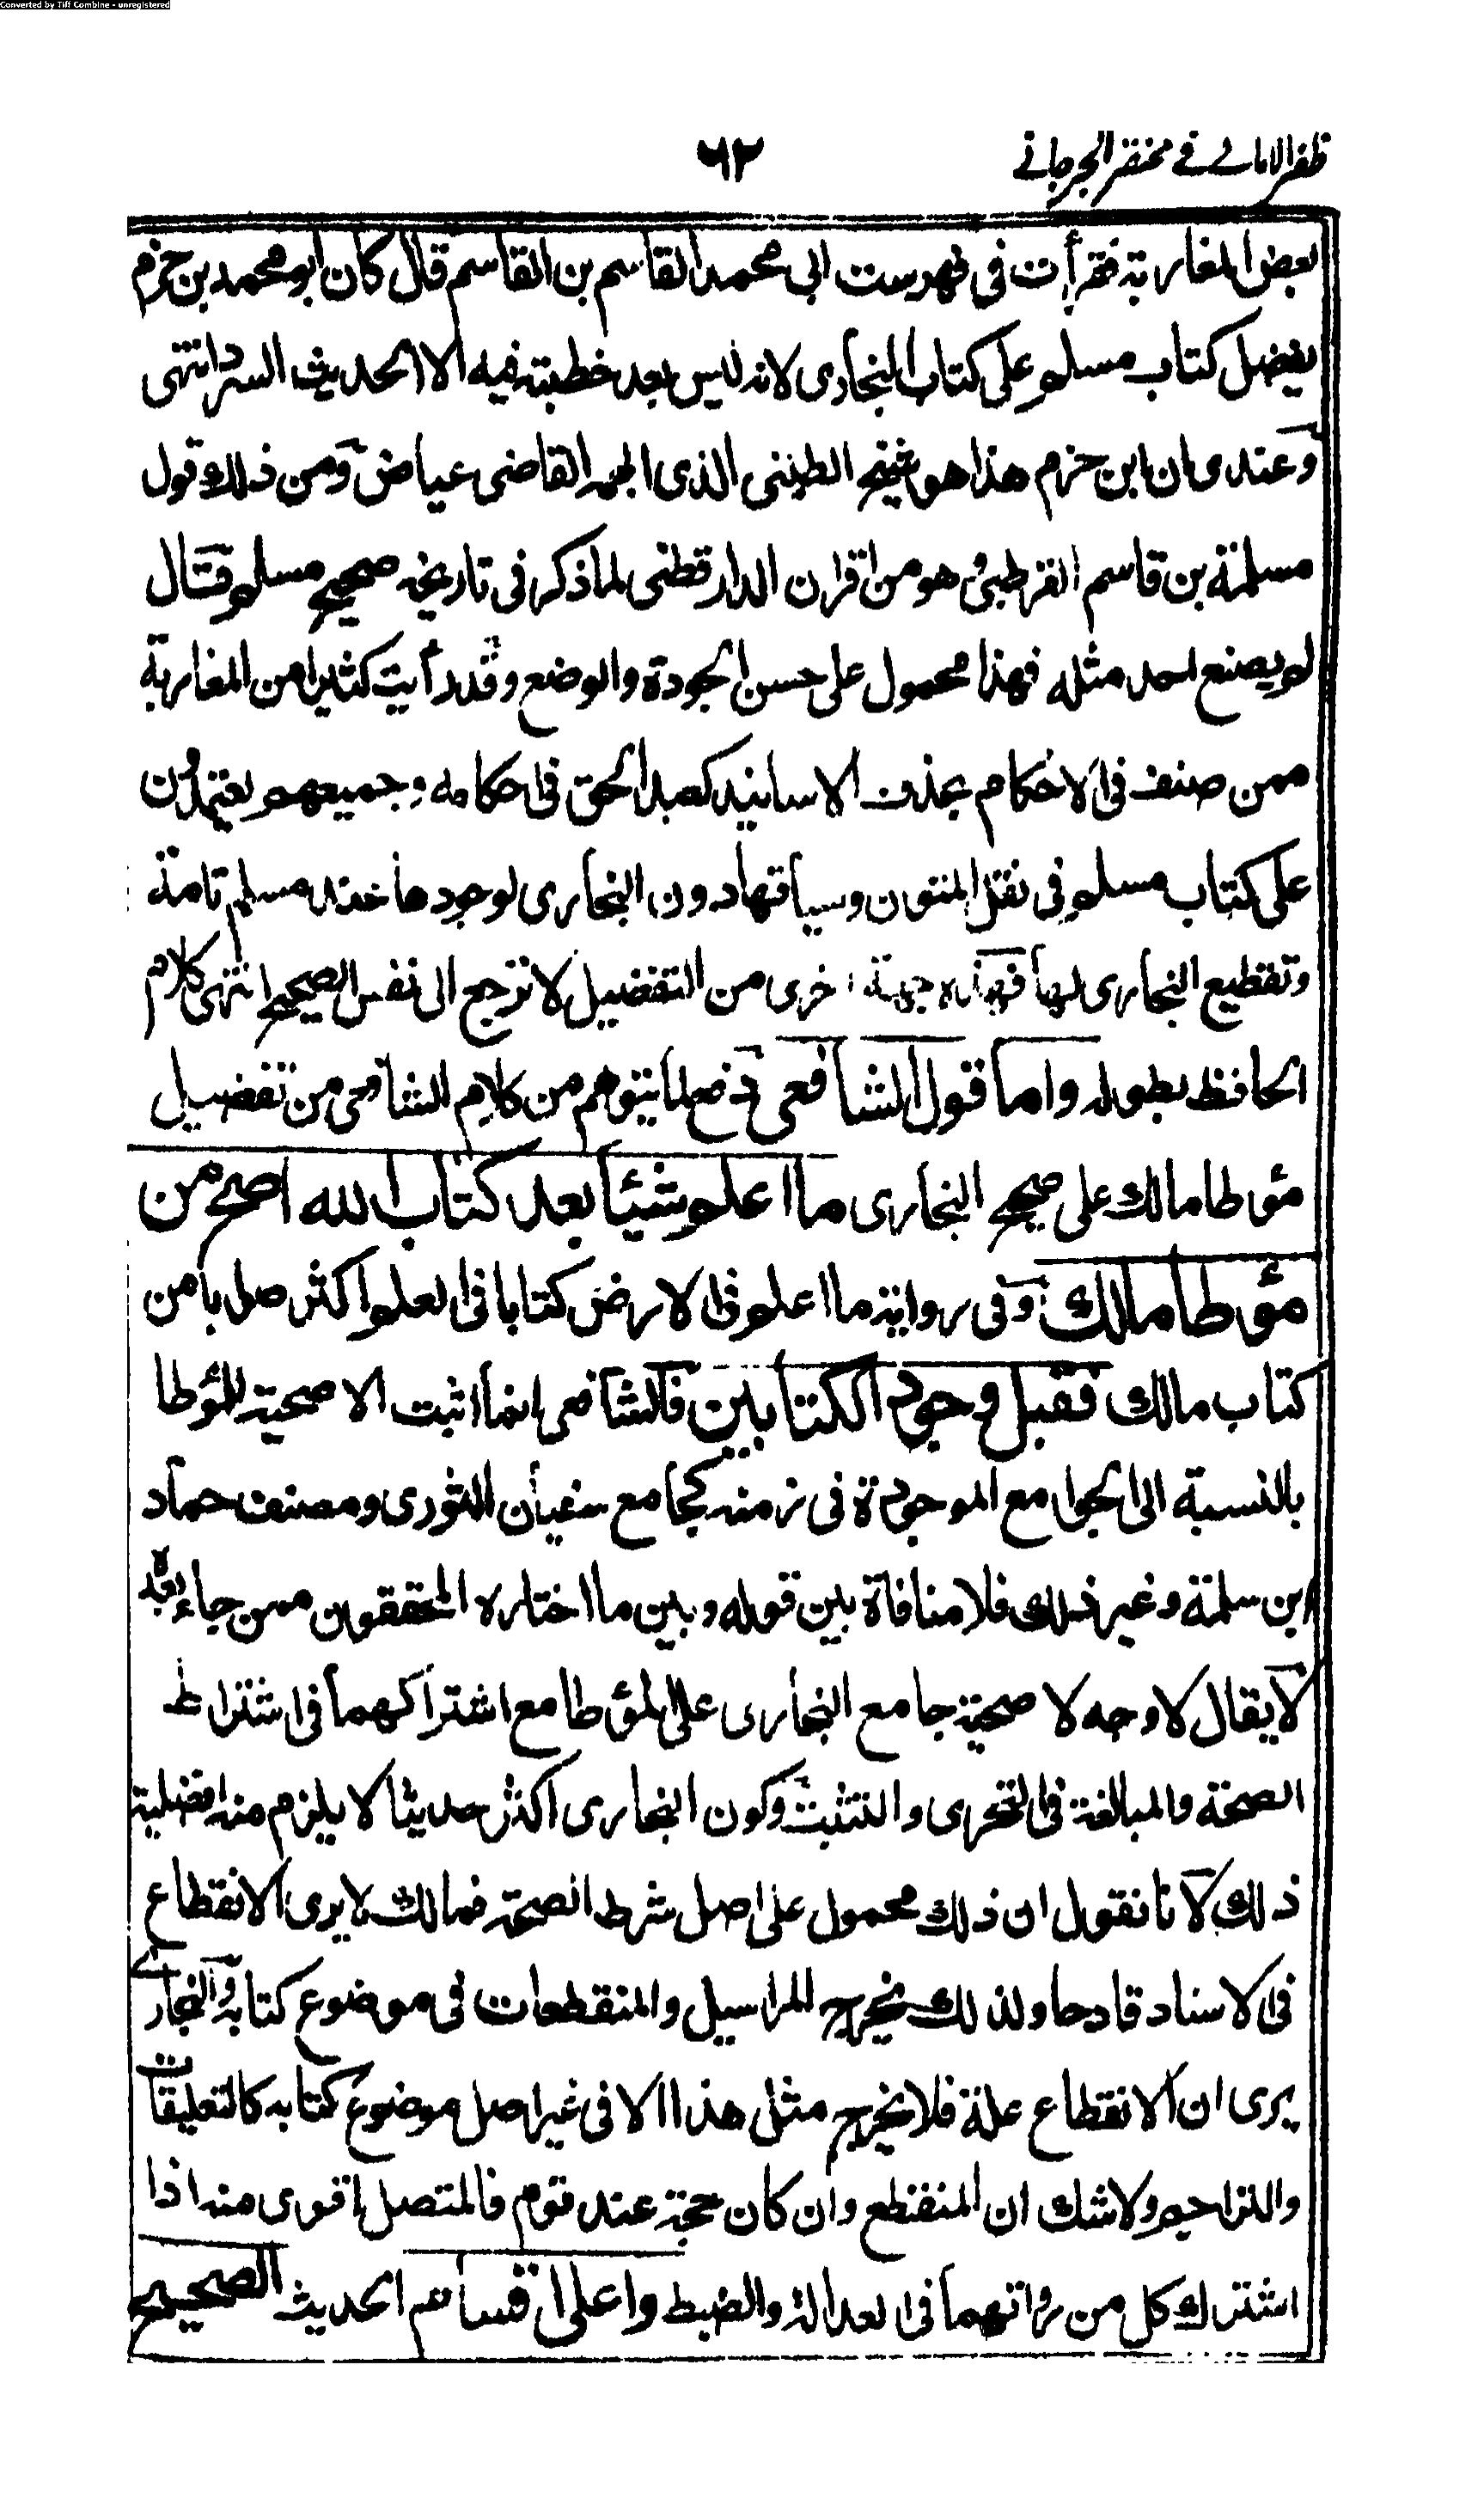 Converted by Tiff Combine - unregistered
ظفر الامانے فے مختصر الجرجانے
٦٢
بعض المغاربة فقرأت فى فهرست ابى محمد القاسم بن القاسم قال كان ابو محمد بن حزم
يفضل كتاب مسلم على كتاب البخارى لانه ليس بعد خطبته فيه الا الحديث السرد انتهى
وعندى ان ابن حزم هذا هو شيخ الطبنى الذى ابهمه القاضى عياض ومن ذلك قول
مسلمة بن قاسم القرطبى وهو من اقران الدارقطنى لما ذكر فى تاريخه صحيح مسلم قال
لم يصنع احد مثله فهذا محمول على حسن الجودة والوضع وقد رأيت كثيرا من المغاربة
ممن صنف فى الاحكام بحذف الاسانيد كعبد الحق فى احكامه وجميعهم يعتمدون
على كتاب مسلم فى نقل المتون وسياقها دون البخارى لوجودها عند مسلم تامة
وتقطيع البخارى لها فهذه جهة اخرى من التفضيل لا ترجع الى نفس الصحيح انتهى كلام
الحافظ بطوله واما قول الشافعى دفع لما يتوهم من كلام الشافعى من تفضيل
مؤطا مالك على صحيح البخارى ما اعلم شيئا بعد كتاب الله اصح من
مؤطا مالك وفى رواية ما اعلم فى الارض كتابا فى العلم اكثر صوابا من
كتاب مالك فقبل وجود الكتابين فالشافعى انما اثبت الاصحية للمؤطا
بالنسبة الى الجوامع الموجودة فى زمنه كجامع سفيان الثورى ومصنف حماد
ابن سلمة وغير ذلك فلا منافاة بين قوله وبين ما اختاره المحققون ممن جاء بعده
لا يقال لا وجه لاصحية جامع البخارى على المؤطا مع اشتراكهما فى اشتراط
الصحة والمبالغة فى التحرى والتثبت وكون البخارى اكثر حديثا لا يلزم منه افضلية
ذلك لانا نقول ان ذلك محمول على اصل شرط الصحة فمالك لا يرى الانقطاع
فى الاسناد قادحا ولذلك يخرج المراسيل والمنقطعات فى موضوع كتابه والبخارى
يرى ان الانقطاع علة فلا يخرج مثل هذا الا فى غير اصل موضوع كتابه كالتعليقات
والتراجم ولا شك ان المنقطع وان كان حجة عند قوم فالمتصل اقوى منه اذا
اشترك كل من رواتهما فى العدالة والضبط واعلى اقسام الحديث الصحيح